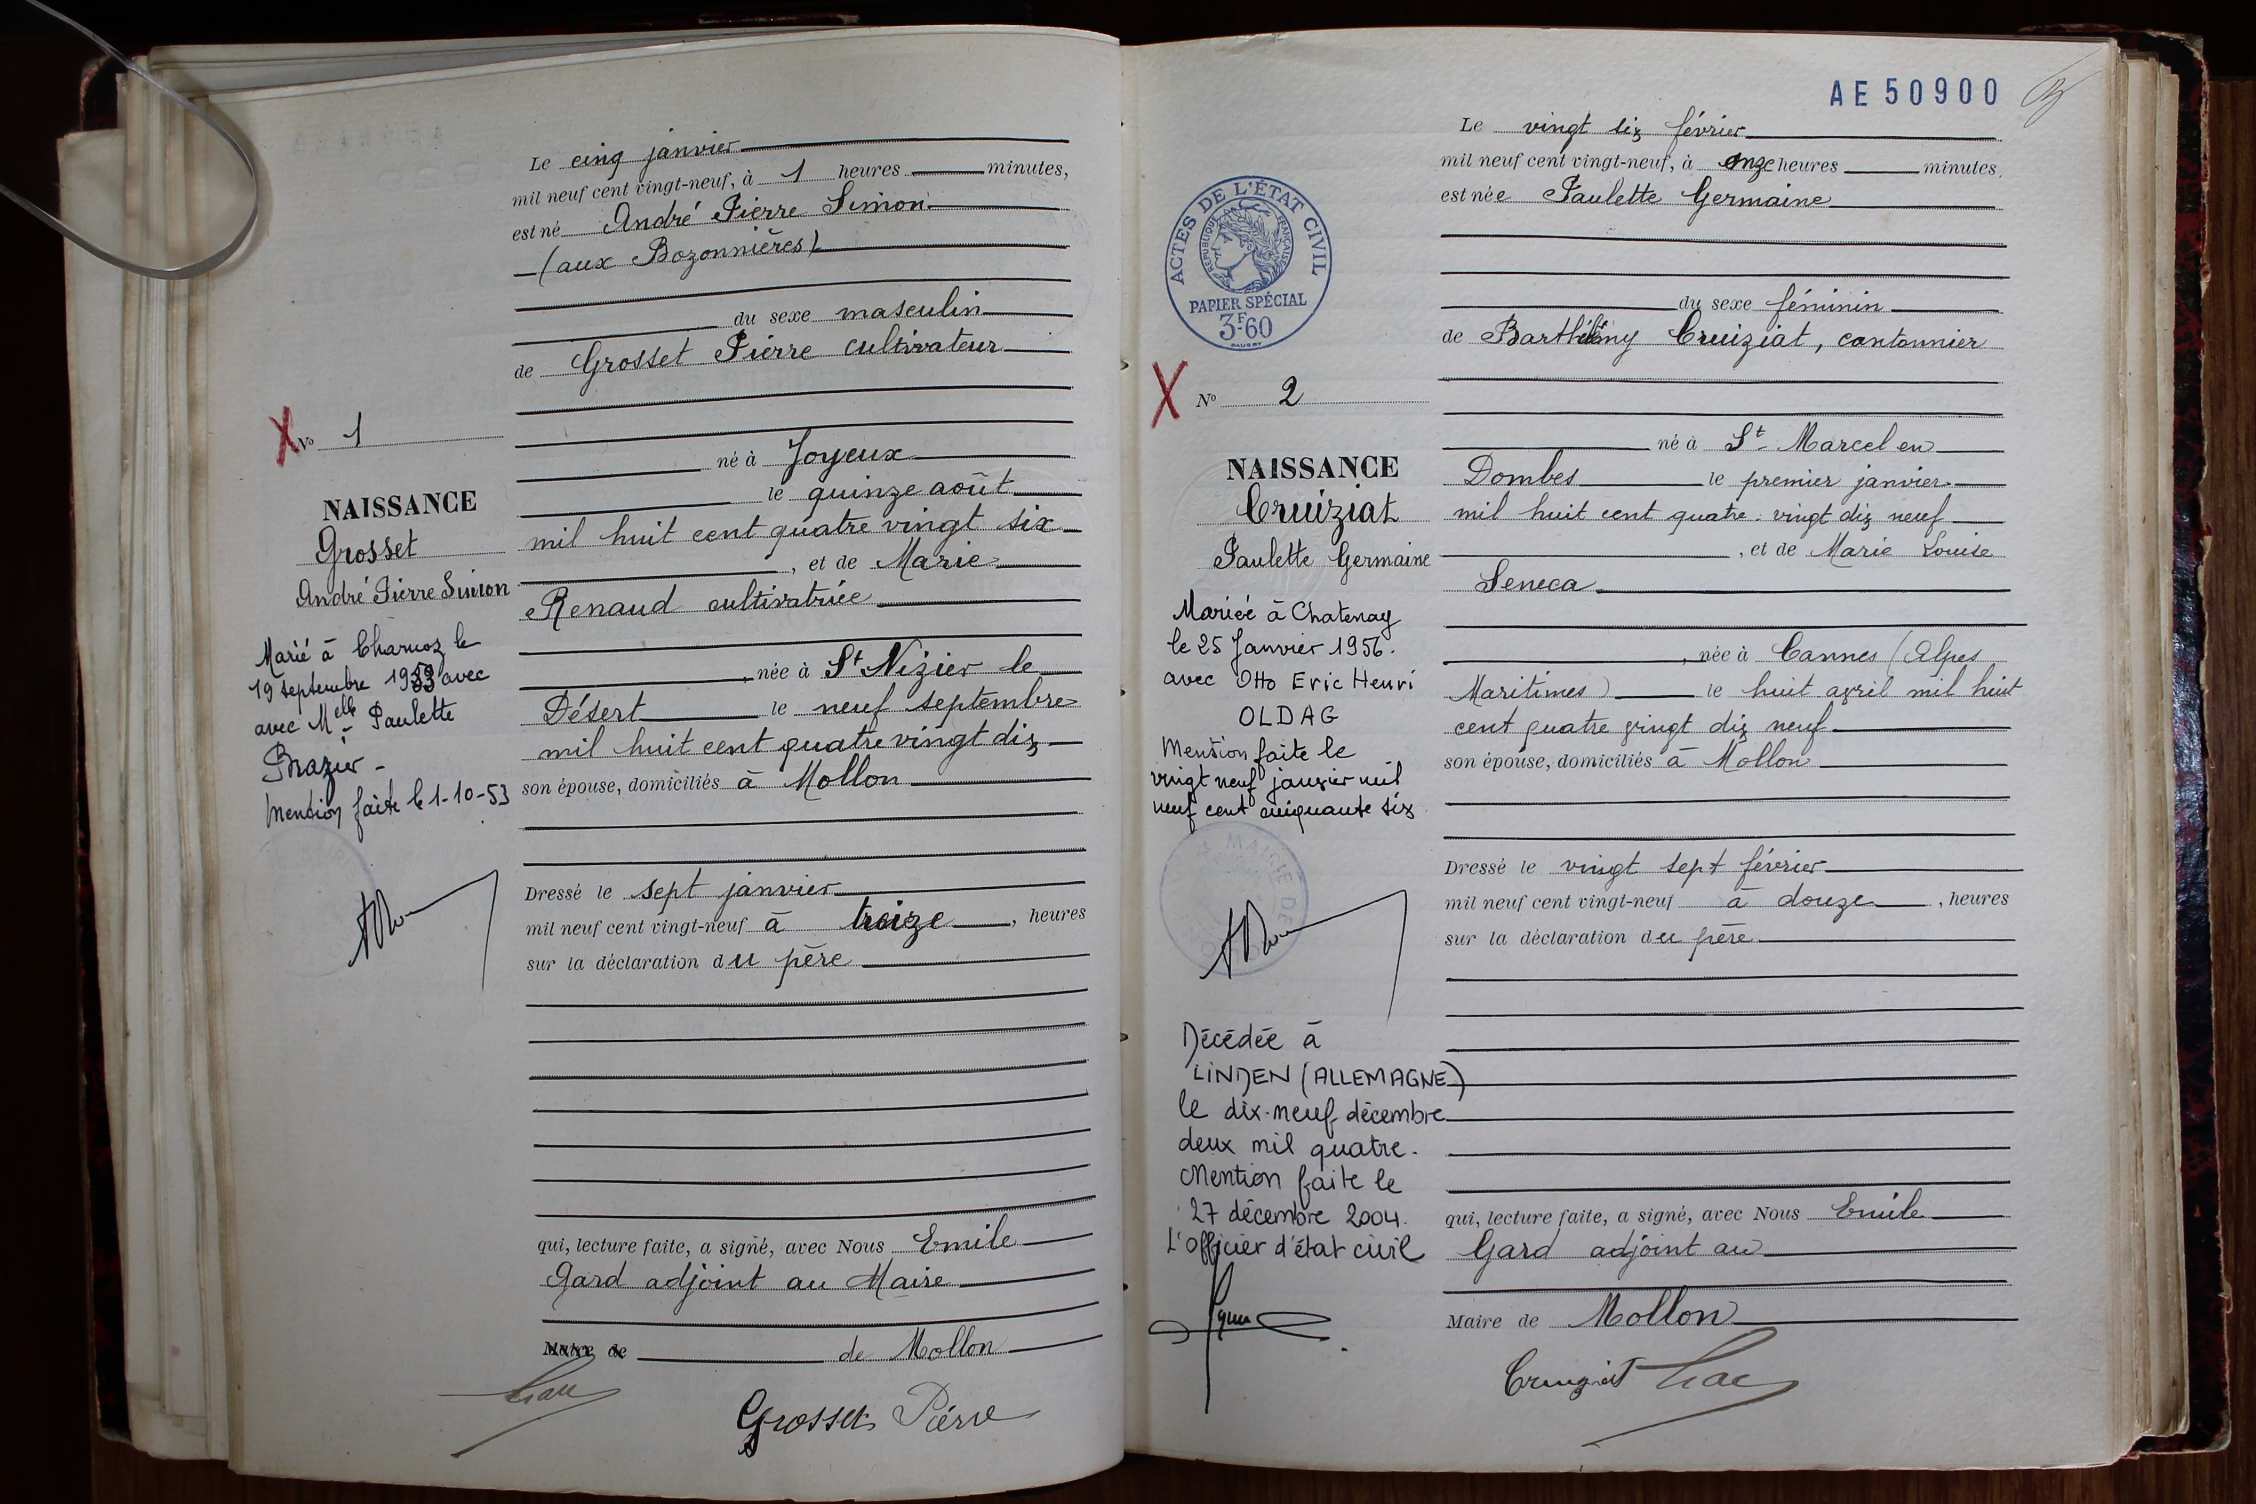 Le cinq janvier
mil neuf cent vingt-neuf, à 1 heures minutes,
est né André Pierre Simon
(aux Bozonnières)
du sexe masculin
de Grosset Pierre cultivateur
né à Joyeux
le quinze août
mil huit cent quatre vingt six
, et de Marie
Renaud cultivatrice
, née à St Nizier le
Désert le neuf septembre
mil huit cent quatre vingt dix
son épouse, domiciliés à Mollon
Dressé le sept janvier
mil neuf cent vingt-neuf à treize, heures
sur la déclaration du père
qui, lecture faite, a signé, avec Nous Emile
Gard adjoint au Maire
Maire de de Mollon
Grosset Pierre
No 1
NAISSANCE
Grosset
André Pierre Simon
Marié à Charnoz le
19 septembre 1953 avec
avec Melle Paulette
Brazier -
Mention faite le 1-10-53
AE 50900
Le vingt six février
mil neuf cent vingt-neuf, à onze heures minutes,
est née Paulette Germaine
du sexe féminin
de Barthélémy Cruiziat, cantonnier
né à St Marcel en
Dombes le premier janvier
mil huit cent quatre-vingt dix neuf
, et de Marie Louise
Seneca
, née à Cannes (Alpes
Maritimes) le huit avril mil huit
cent quatre vingt dix neuf
son épouse, domiciliés à Mollon
Dressé le vingt sept février
mil neuf cent vingt-neuf à douze, heures
sur la déclaration du père
qui, lecture faite, a signé, avec Nous Emile
Gard adjoint au
Maire de Mollon
Cruiziat
ACTES DE L'ÉTAT CIVIL
RÉPUBLIQUE FRANÇAISE
PAPIER SPÉCIAL
3F60
No 2
NAISSANCE
Cruiziat
Paulette Germaine
Mariée à Chatenay
le 25 Janvier 1956.
avec Otto Eric Henri
OLDAG
Mention faite le
vingt neuf janvier mil
neuf cent cinquante six
MAIRIE DE
Décédée à
LINDEN (ALLEMAGNE)
le dix-neuf décembre
deux mil quatre.
Mention faite le
27 décembre 2004.
L'officier d'état civil